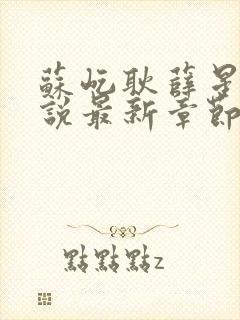 蘇屹耿薛星
說最新章節
點點點z